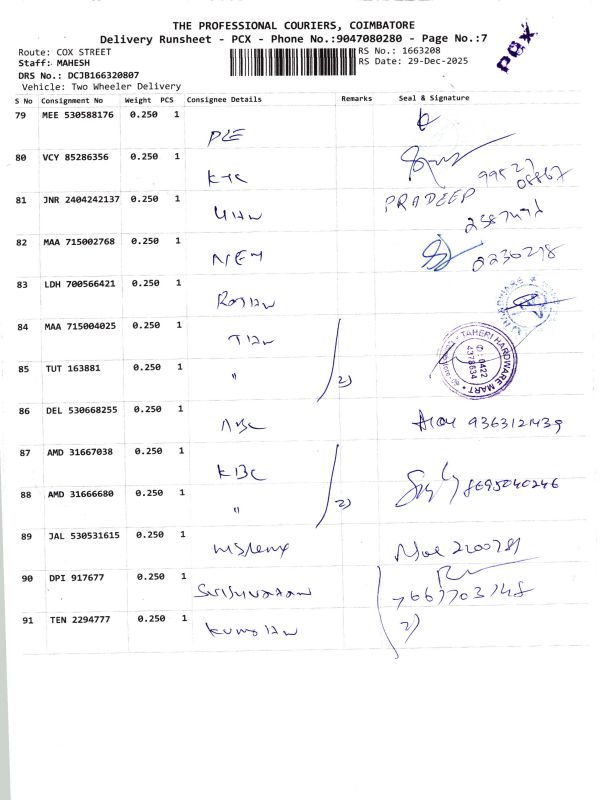 THE PROFESSIONAL COURIERS, COIMBATORE
Delivery Runsheet - PCX - Phone No.:9047080280 - Page No.:7
PCX
Route: COX STREET
RS No.: 1663208
Staff: MAHESH
RS Date: 29-Dec-2025
DRS No.: DCJB166320807
Vehicle: Two Wheeler Delivery
S No Consignment No Weight PCS Consignee Details Remarks Seal & Signature
79 MEE 530588176 0.250 1
PLE
80 VCY 85286356 0.250 1
KTC
81 JNR 2404242137 0.250 1
PRADEEP
82 MAA 715002768 0.250 1
NEM
0236278
83 LDH 700566421 0.250 1
84 MAA 715004025 0.250 1
TAHERI HARDWARE MART
0422
4378634
85 TUT 163881 0.250 1
" 2)
86 DEL 530668255 0.250 1
ABC
87 AMD 31667038 0.250 1
KBC
88 AMD 31666680 0.250 1
" 2)
8695040246
89 JAL 530531615 0.250 1
90 DPI 917677 0.250 1
91 TEN 2294777 0.250 1
2)